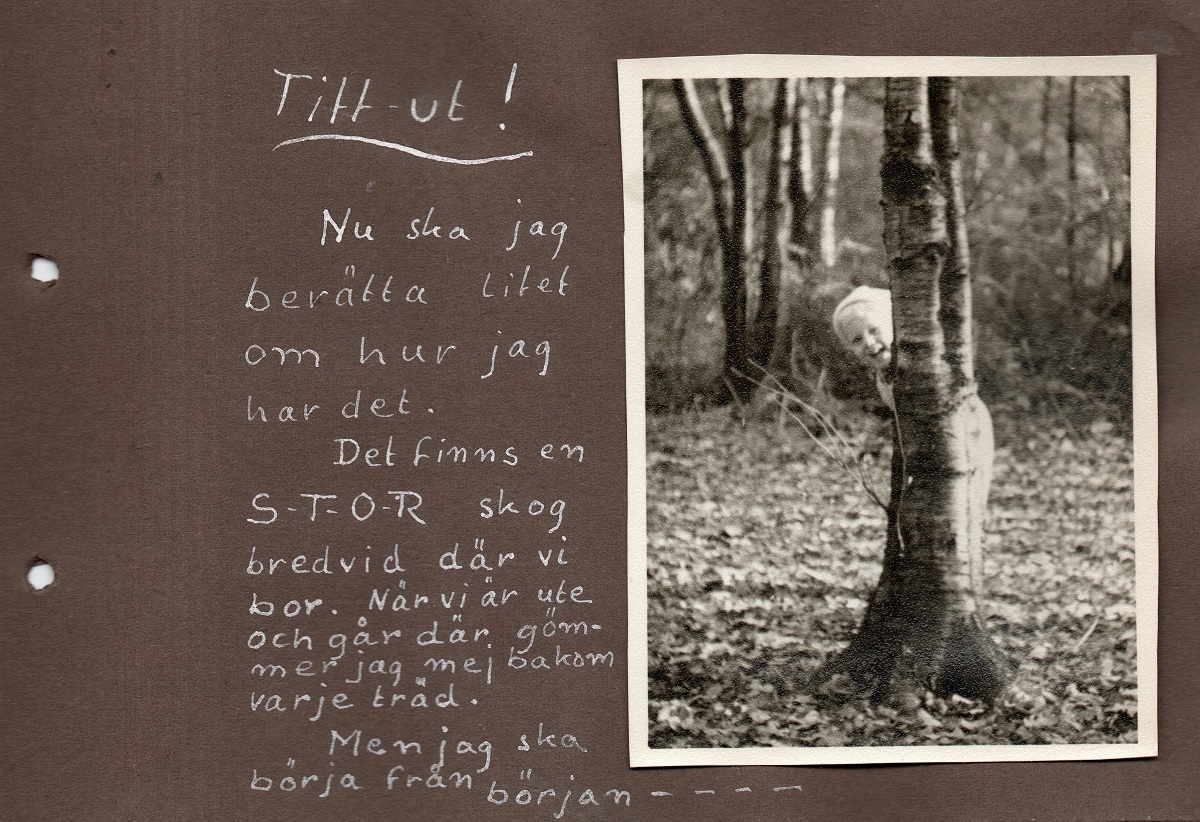 Titt-ut!
Nu ska jag
berätta litet
om hur jag
har det.
Det finns en
S-T-O-R skog
bredvid där vi
bor. När vi är ute
och går där göm-
mer jag mej bakom
varje träd.
Men jag ska
börja från början - - - -